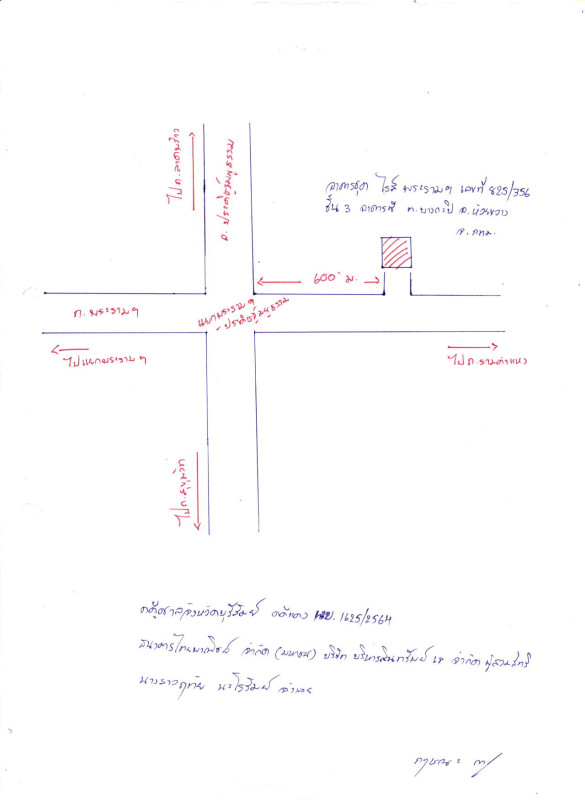 ไป ถ.ลาดพร้าว
ถ. ประดิษฐ์มนูธรรม
อาคารชุด ไรส์ พระราม ๙ เลขที่ 825/356
ชั้น 3 อาคารซี ต.บางกะปิ อ.ห้วยขวาง
จ.กทม.
600 ม.
ถ. พระราม ๙
แยกพระราม ๙
- ประดิษฐ์มนูธรรม
ไปแยกพระราม ๙
ไป ถ.รามคำแหง
ไป ถ.สุขุมวิท
คดีศาลจังหวัดบุรีรัมย์ คดีแดง ผบ. 1625/2564
ธนาคารไทยพาณิชย์ จำกัด (มหาชน) บริษัท บริหารสินทรัพย์ จำกัด ผู้สวมสิทธิ
จำเลย